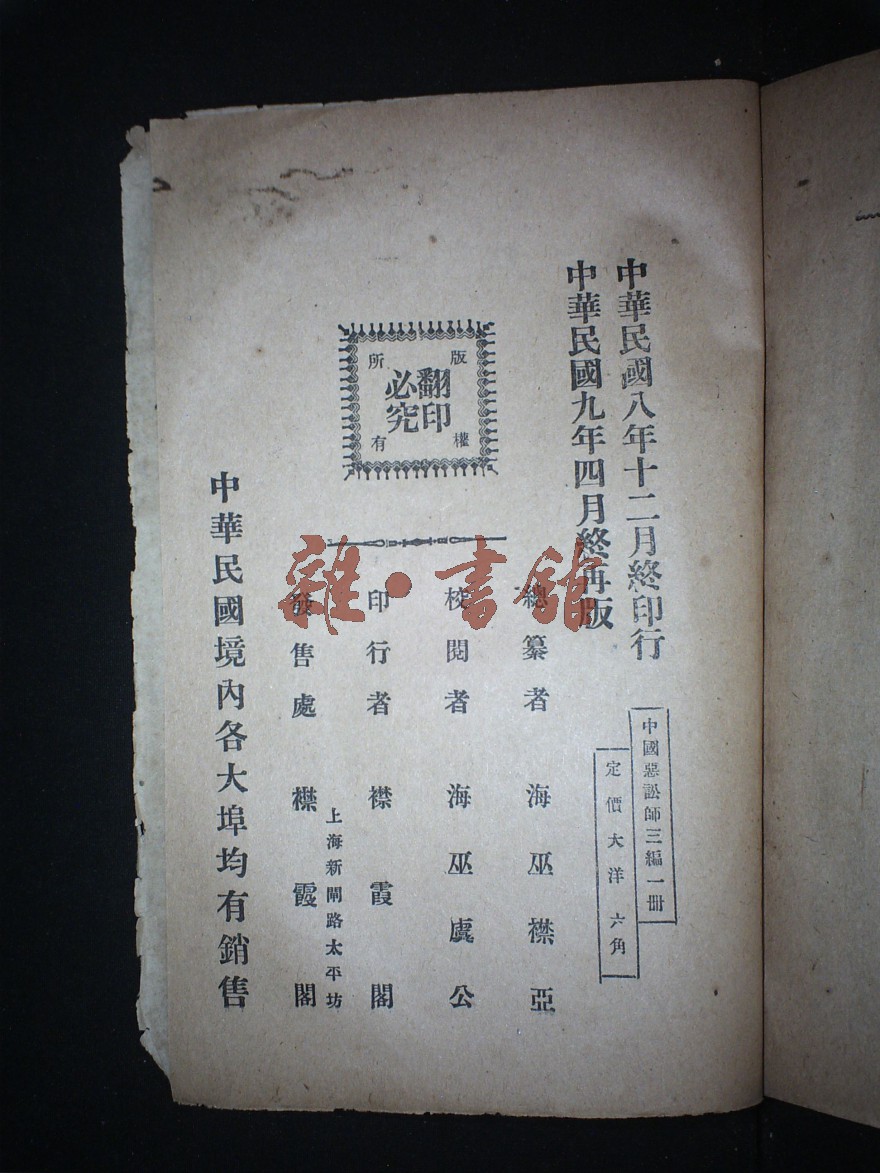 中華民國八年十二月終印行
中華民國九年四月終再版
中國惡訟師三編一冊
定價大洋六角
版權所有
翻印必究
總纂者 海巫襟亞
校閱者 海巫虞公
印行者 襟霞閣
上海新閘路太平坊
發售處 襟霞閣
中華民國境內各大埠均有銷售
雜·書館